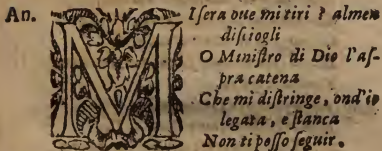 An. MIsera oue mi tiri ? almen
disciogli
O Ministro di Dio l'as-
pra catena
Che mi distringe, ond'io
legata, e stanca
Non ti posso seguir.